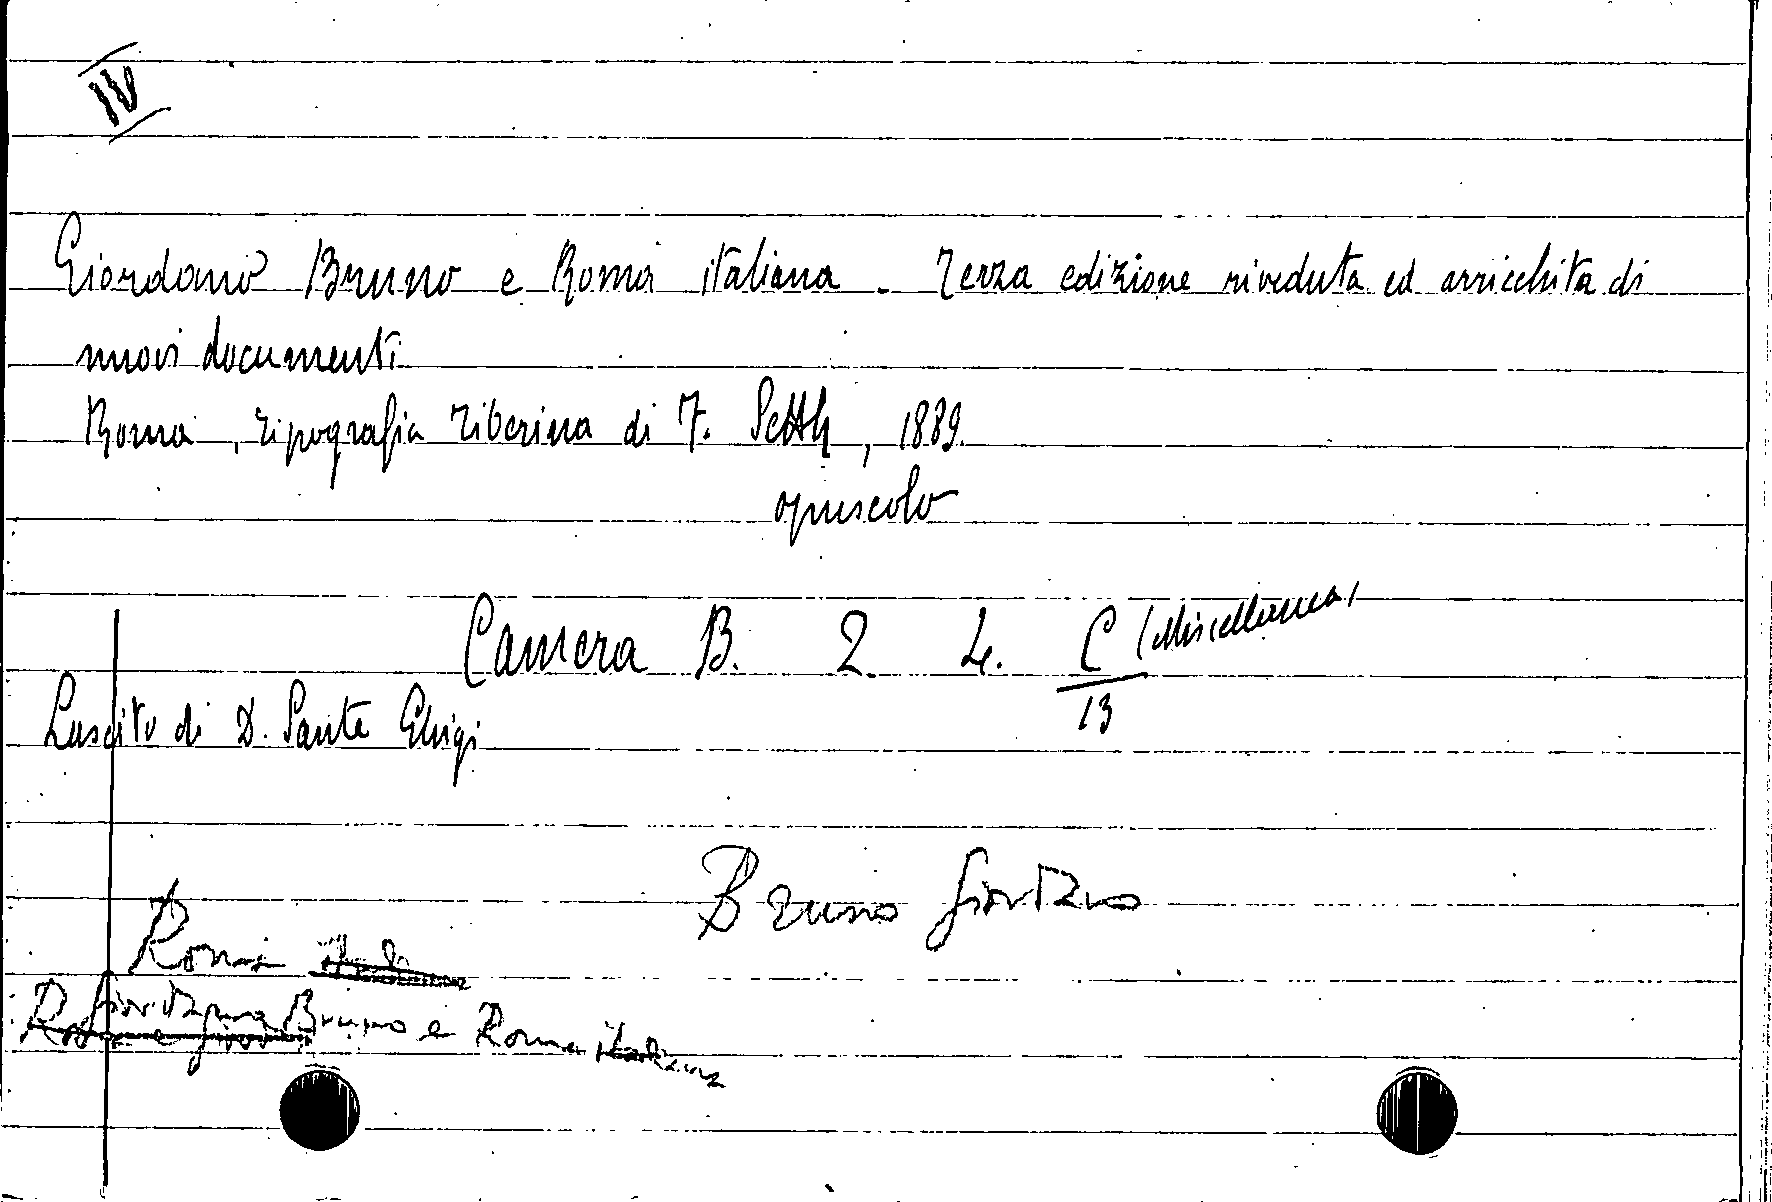 IV
Giordano Bruno e Roma italiana - Terza edizione riveduta ed arricchita di
nuovi documenti
Roma, Tipografia Tiberina di F. Setth, 1889.
opuscolo
Camera B. 2 4. C (Miscellanea)
13
Lascito di D. Sante Ghigi
Bruno Giordano
Roma
Giordano Bruno e Roma italiana